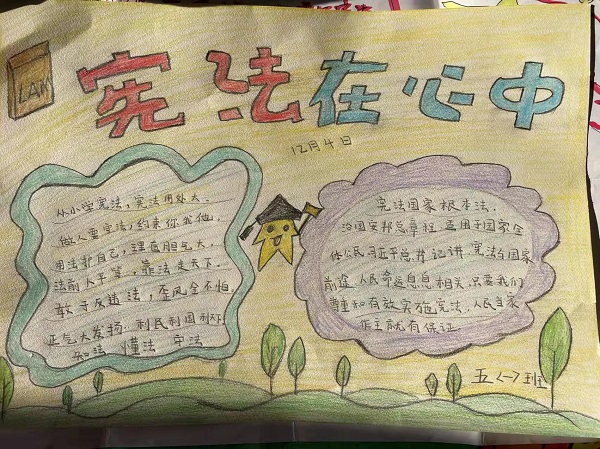 LAW
宪法在心中
12月4日
从小学宪法，宪法用处大.
做人要宪法，约束你我他,
用法护自己，理直胆气大.
法前人平等，靠法走天下.
敢于反违法，歪风全不怕.
正气大发扬. 利民利国利
知法 懂法 守法
宪法国家根本法,
治国安邦总章程 适用于国家全
体公民习近平总书记讲 宪法与国家
前途 人民命运息息相关.只要我们
尊重和有效实施宪法，人民当家
作主就有保证
五<一>班